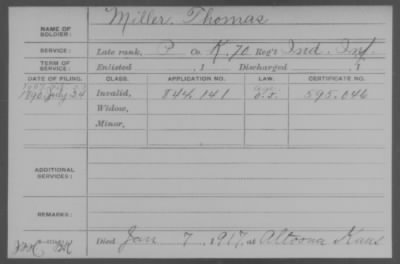 Miller, Thomas
NAME OF SOLDIER:
SERVICE: Late rank, P Co. K, 70 Reg't Ind. Inf.
TERM OF SERVICE: Enlisted , 1 Discharged , 1
DATE OF FILING. CLASS. APPLICATION NO. LAW. CERTIFICATE NO.
1890 July 24 Invalid, 844.141 595.046
Widow,
Minor,
ADDITIONAL SERVICES:
REMARKS:
Died Jan 7, 1917, at Altoona Kans